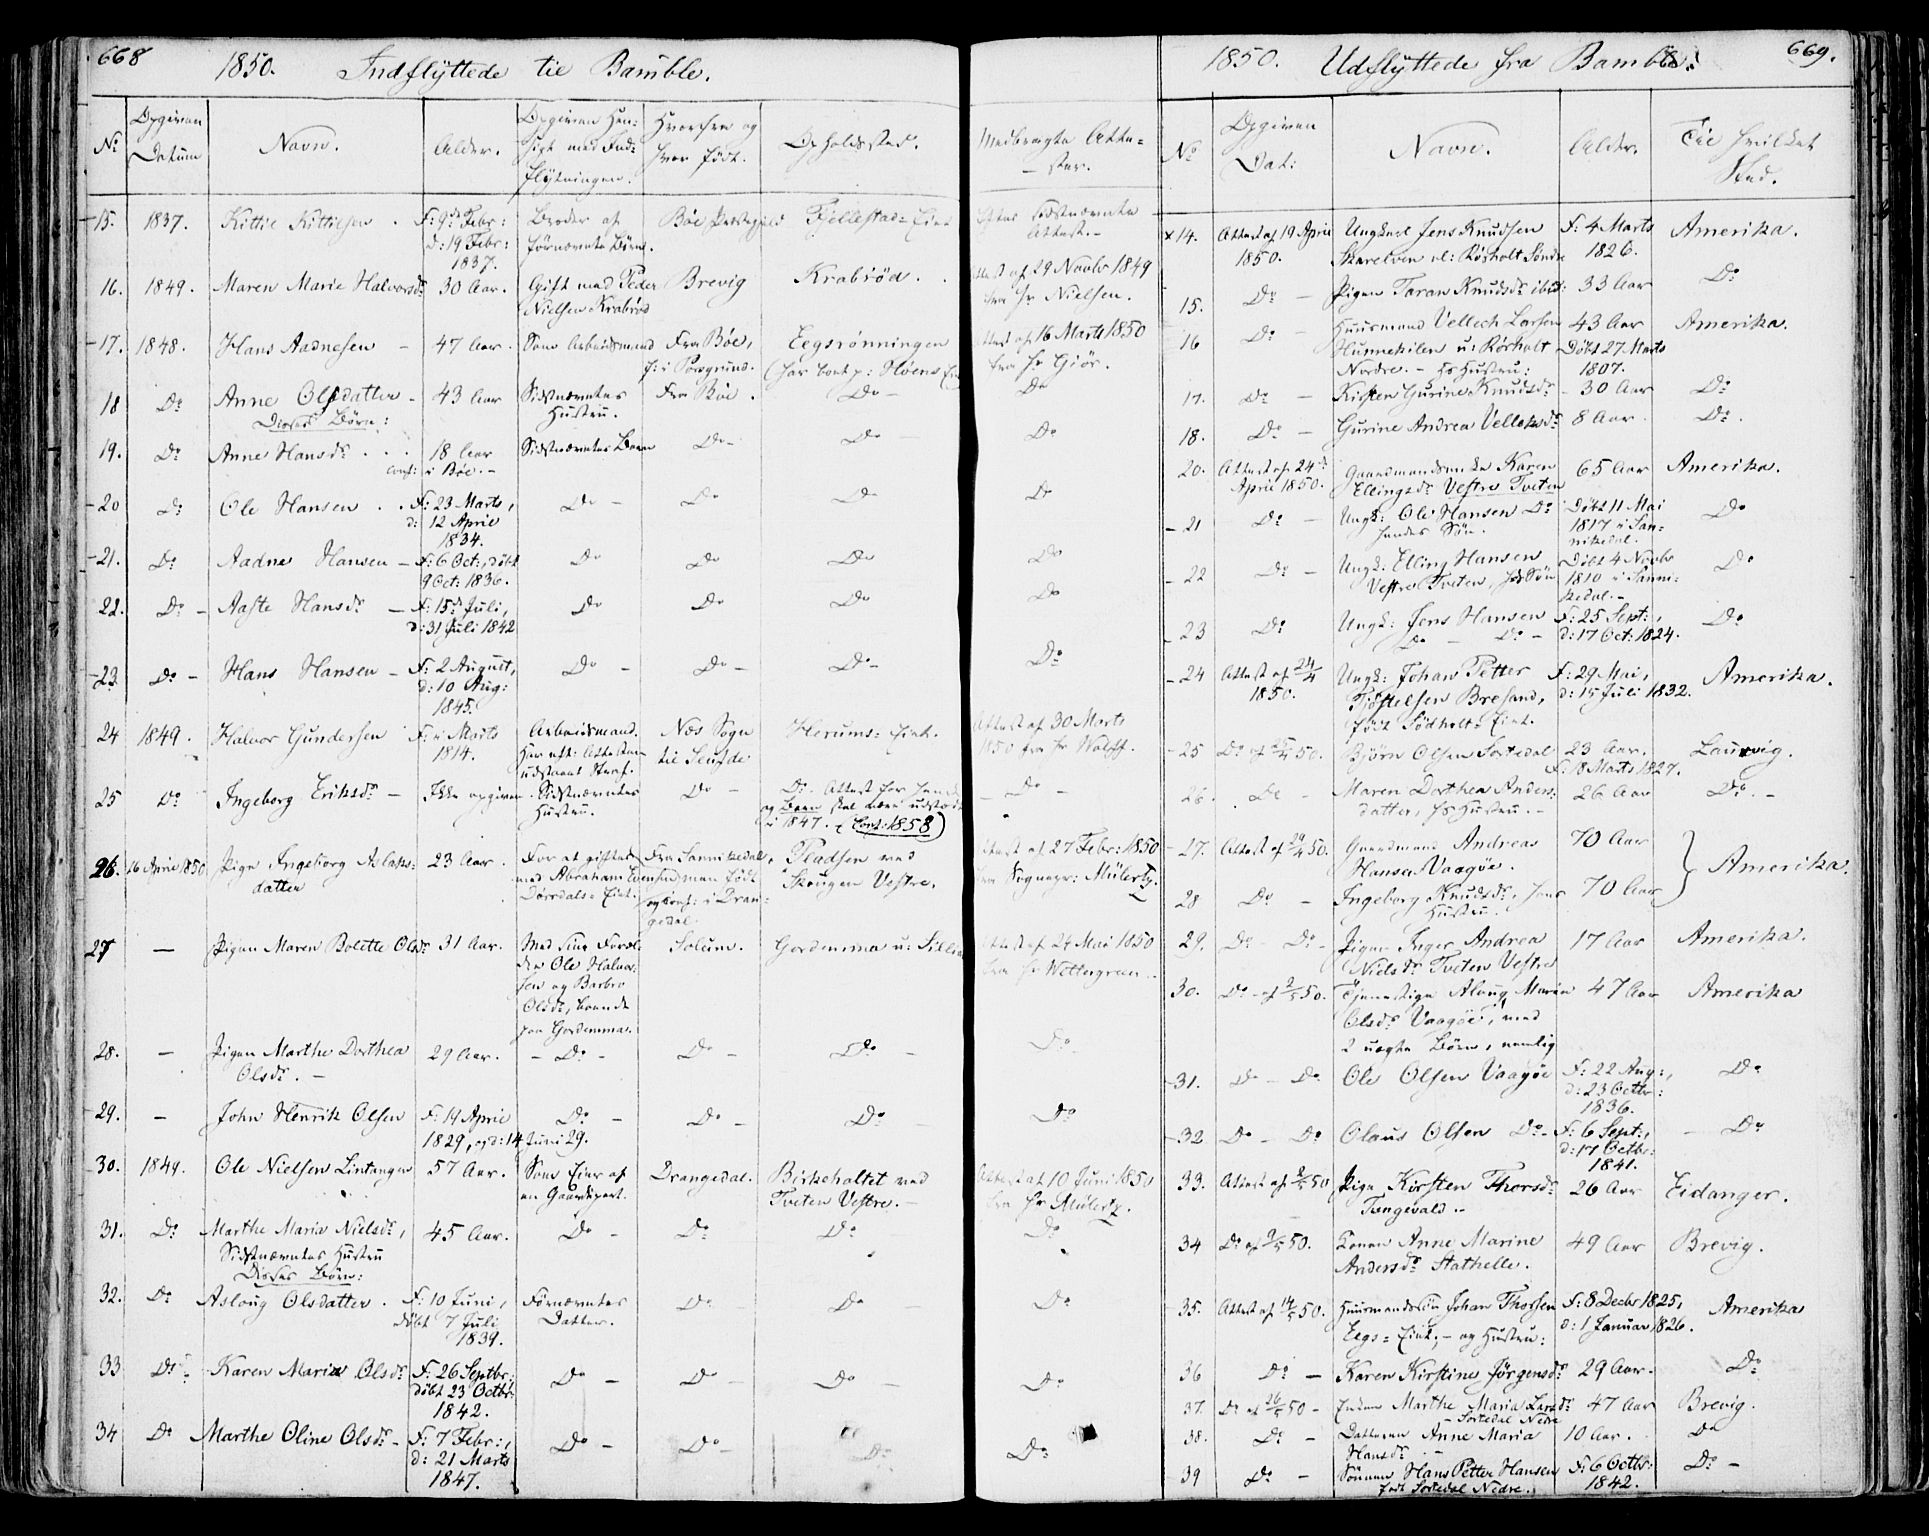 668
1850. Indflyttede til Bamble.
No
Opgiven Datum
Navn.
Alder.
Opgiven Hensigt med Indflytningen.
Hvorfra og hvor født.
Opholdssted.
Medbragte Attester.
15. 1837. Kittil Kittilsen. F: 9de Febr: d: 19 Febr: 1837. Broder af førnævnte Børn. Bøe Præstegjeld Fjellestad-Eiet Efter sidstnævnte Attest.-
16. 1849. Maren Marie Halvorsdr 30 Aar. Gift med Peder Nielsen Krabrød Brevig Krabrød. Attest af 29 Novbr 1849 fra Hr Nielsen.
17. 1848. Hans Aadnesen - 47 Aar. Som Arbeidsmand Fra Bøe, f: i Porsgrund. Eegsrønningen (har boet p: Høens Eiet Attest af 16 Marts 1850 fra Hr Giør.
18 Do Anne Olsdatter - 43 Aar Sidstnævntes Hustru. Fra Bøe. Do - Do
Disses Børn:
19. Do Anne Hansdr... 18 Aar conf: i Bøe.- Sidstnævntes Barn Do - Do - Do
20 Do Ole Hansen.. F: 23 Marts, d: 12 April 1834. Do - Do Do Do
21. Do Aadne Hansen - F: 6 Oct:, døbt 9 Oct: 1836. Do Do Do Do
22. Do - Aaste Hansdr - F: 15de Juli, d: 31 Juli 1842 Do Do Do Do
23. Do - Hans Hansen - F: 2 August, d: 10 Aug: 1845. Do - Do - Do - Do
24 1849. Halvor Gundersen F: i Marts 1814. Arbeidsmand. Har efter Attesten udstaaet Straf. Næs Sogn til Seufde Herums-Eiet. Attest af 30 Marts 1850 fra Hr Wolff.
25 Do Ingeborg Eriksdr - Ikke opgiven Sidstnævntes Hustru. Do - Do. Attest for hende og Barn skal være udstedt i 1847. (Conf: 1858) - Do -
26. 16 April 1850 Pige Ingeborg Aslaksdatter 23 Aar. For at giftes med Abraham Evensen Dørdals-Eiet. Fra Sannikedal, men født og conf: i Drangedal. Pladsen ved Skougen Vestre. Attest af 27 Febr: 1850 fra Sognepr: Mülertz.
27 - Pigen Maren Bolette Olsdr 31 Aar. Med sine Forældre Ole Halvorsen og Barbro Olsdr, boende paa Gordemma. Solum. Gordemma u: Attest af 24 Mai 1850 fra Hr Wettergreen..
28. - Pigen Marthe Dorthea Olsdr.- 29 Aar. - Do - Do - Do - Do -
29. - John Henrik Olsen F: 19 April 1829, og d: 14 Juni 29. Do - Do - Do Do
30. 1849. Ole Nielsen Lintangen 57 Aar. Som Eier af en Gaardpart. Drangedal. Birkeholtet ved Tveten Vestre.- Attest af 10 Juni 1850 fra Hr Mülertz.
31. Do Marthe Maria Nielsdr, Sidstnævntes Hustru 45 Aar. Do - Do Do - Do
Disses Børn:
32. Do Asloug Olsdatter. F: 10 Juni, døbt 7 Juli 1839. Førnævntes Datter. Do Do Do
33 Do - Karen Maria Olsdr F: 26 Septbr: døbt 23 Octbr 1842. Do - Do - Do - Do
34 Do Marthe Oline Olsdr - F: 7 Febr:, d: 21 Marts 1847. Do - Do - Do Do
669.
1850. Udflyttede fra Bamble.
No
Opgiven Dat:
Navn.
Alder.
Til hvilket Sted.
x14. Attest af 19 April 1850. Ungkarl Jens Knudsen Skarelven vl: Rørholt Søndre F: 4 Marts 1826. Amerika.
15. Do - Pigen Taran Knudsdr ibid: 33 Aar Do
16 Do - Huusmand Vellech Larsen Hunnekilen u: Rørholt Nordre. - Hs Hustru: 43 Aar Døbt 27 Marts 1807. Amerika.
17. Do - Kirsten Gurine Knudsdr - 30 Aar Do
18. Do - Gurine Andrea Velleksdr 8 Aar. Do.
20. Attest af 24de April 1850. Gaardmandsenke Karen Ellingsdr Vestre Tveten 65 Aar Amerika.
21 Do - Ungk: Ole Hansen Do hendes Søn. Døbt 11 Mai 1817 i Sannikedal. Do
22 Do - Ungk: Elling Hansen Vestre Tveten, hds Søn Døbt 4 Novbr 1810 i Sannikedal.- Do
23 Do Ungk: Jens Hansen Do - Do - F: 25 Sept:, d: 17 Oct: 1824. Do
24 Attest af 24/4 1850. Ungk: Johan Petter Kjøstelsen Bresand, født Lödholt-Eiet. F: 29 Mai, d: 15 Juli 1832. Amerika.
25 Do af 50. Bjørn Olsen Sortedal 23 Aar. F: 18 Marts 1827. Laurvig.
26. Do - Maren Dorthea Andersdatter, Hs Hustru.- 26 Aar Do.-
27. Attest af 29/4 50. Gaardmand Andreas Hansen Vaagøe. 70 Aar } Amerika.
28 Do - Ingeborg Knudsdr, hans Hustru. 70 Aar
29. Do - Do - Pigen Inger Andrea Nielsdr Tveten Vestre 17 Aar Amerika.
30. Do - af 2/5 50. Tjenestepige Aloug Maria Olsdr Vaagøe, med 2 uægte Børn, nemlig 47 Aar Amerika
31. Do - Do Ole Olsen Vaagøe F: 22 Aug:, d: 23 Octbr: 1836. Do
32 Do - Do Olaus Olsen Do - F: 6 Sept:, d: 17 Octbr: 1841. - Do
33. Attest af 50 Pige Kirsten Thorsdr Tangevald.- 26 Aar Eidanger.
34 Do af 50. Konen Anne Marine Andersdr Stathelle. 49 Aar Brevig.
35. Attest af 14/5 50. Huusmandssøn Johan Thorsen Eegs-Eiet,- og Hustru: F: 8 Decbr 1825, d: 1 Januar 1826. Amerika
36 Do - Karen Kirstine Jørgensdr 29 Aar. Do
37. Do af 26/5 50 - Enken Marthe Maria Larsdr - Sortedal Nedre 47 Aar Brevig.
38. Do - Datteren Anne Maria Hansdr - 10 Aar. Do
39 Do - Sønnen Hans Petter Hansen født Sortedal Nedre. F: 6 Octbr: 1842. Do -